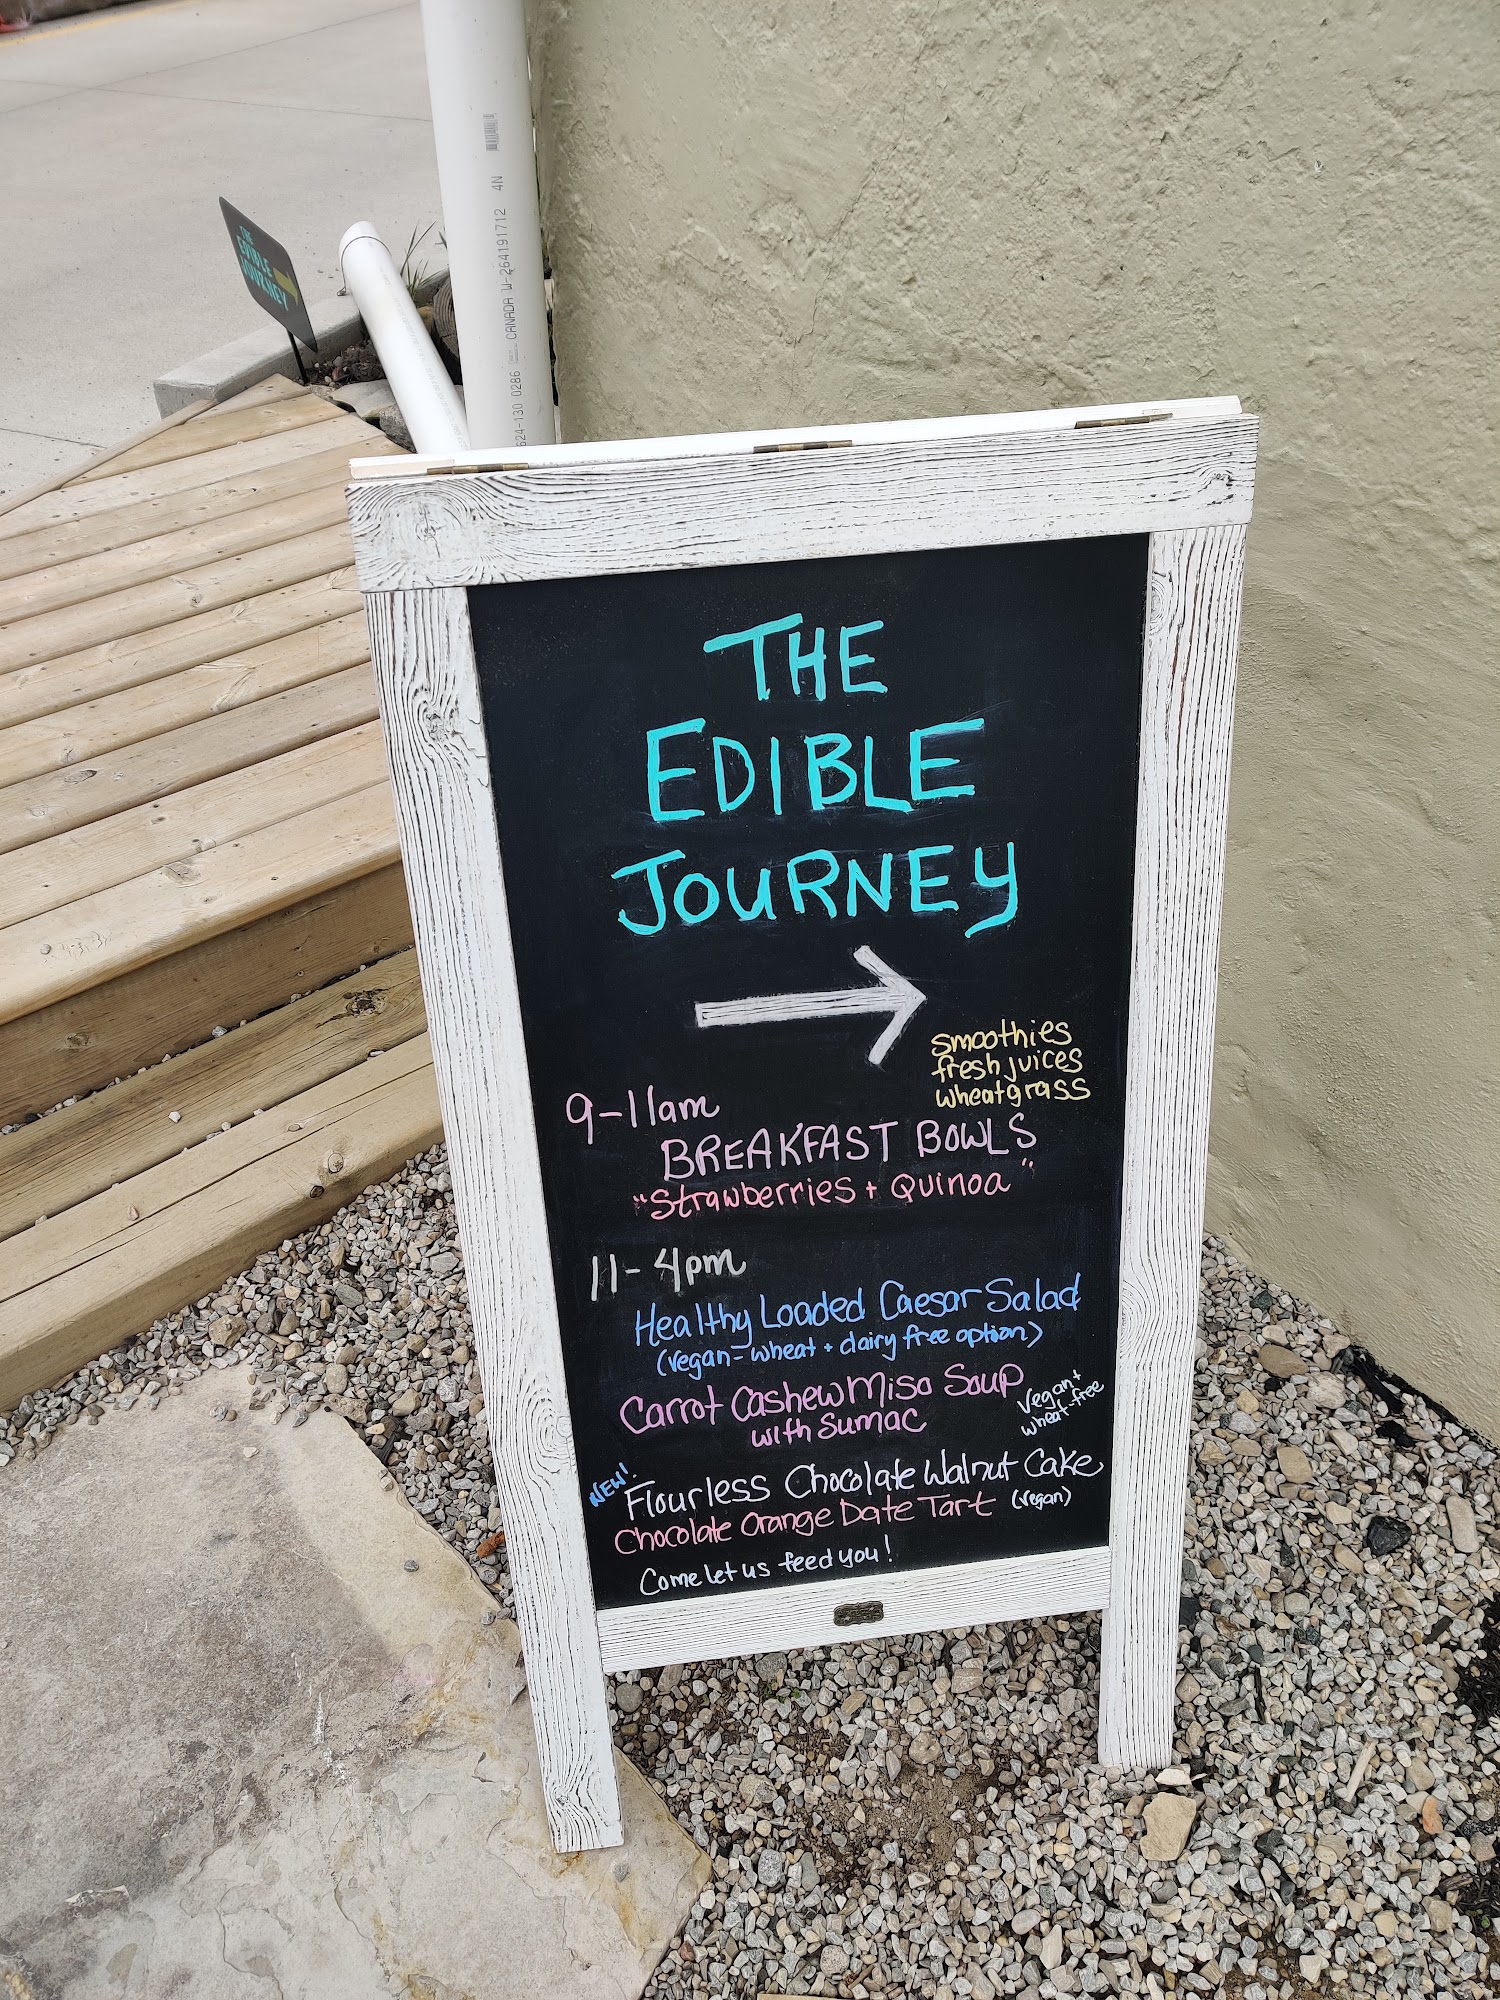 THE
EDIBLE
JOURNEY
4N
CANADA W-264191712
624-130 0286
THE
EDIBLE
JOURNEY
smoothies
fresh juices
wheatgrass
9-11am
BREAKFAST BOWLS
"Strawberries + Quinoa"
11-4pm
Healthy Loaded Caesar Salad
(vegan - wheat + dairy free option)
Carrot Cashew Miso Soup
with Sumac
Vegan +
wheat-free
NEW! Flourless Chocolate Walnut Cake
Chocolate Orange Date Tart (vegan)
Come let us feed you!